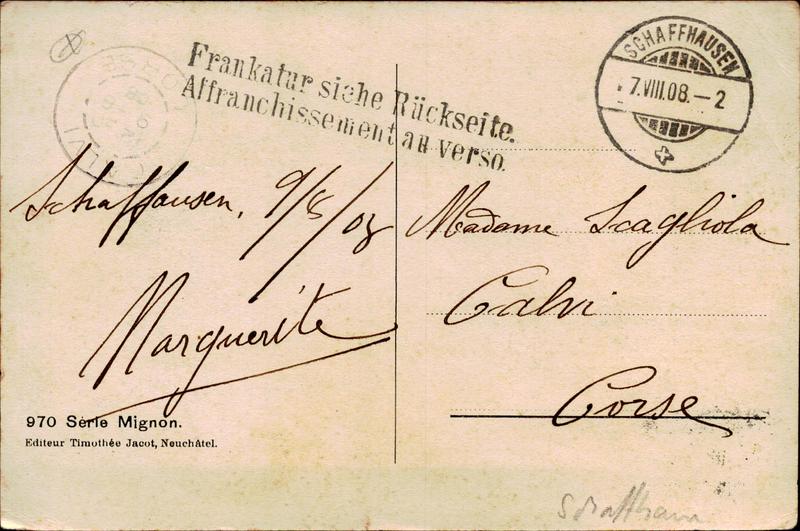 Frankatur siehe Rückseite.
Affranchissement au verso.
SCHAFFHAUSEN
7.VIII.08.-2
CALVI
Schaffausen, 9/8/08
Marguerite
Madame Scagliola
Calvi
Corse
970 Série Mignon.
Editeur Timothée Jacot, Neuchâtel.